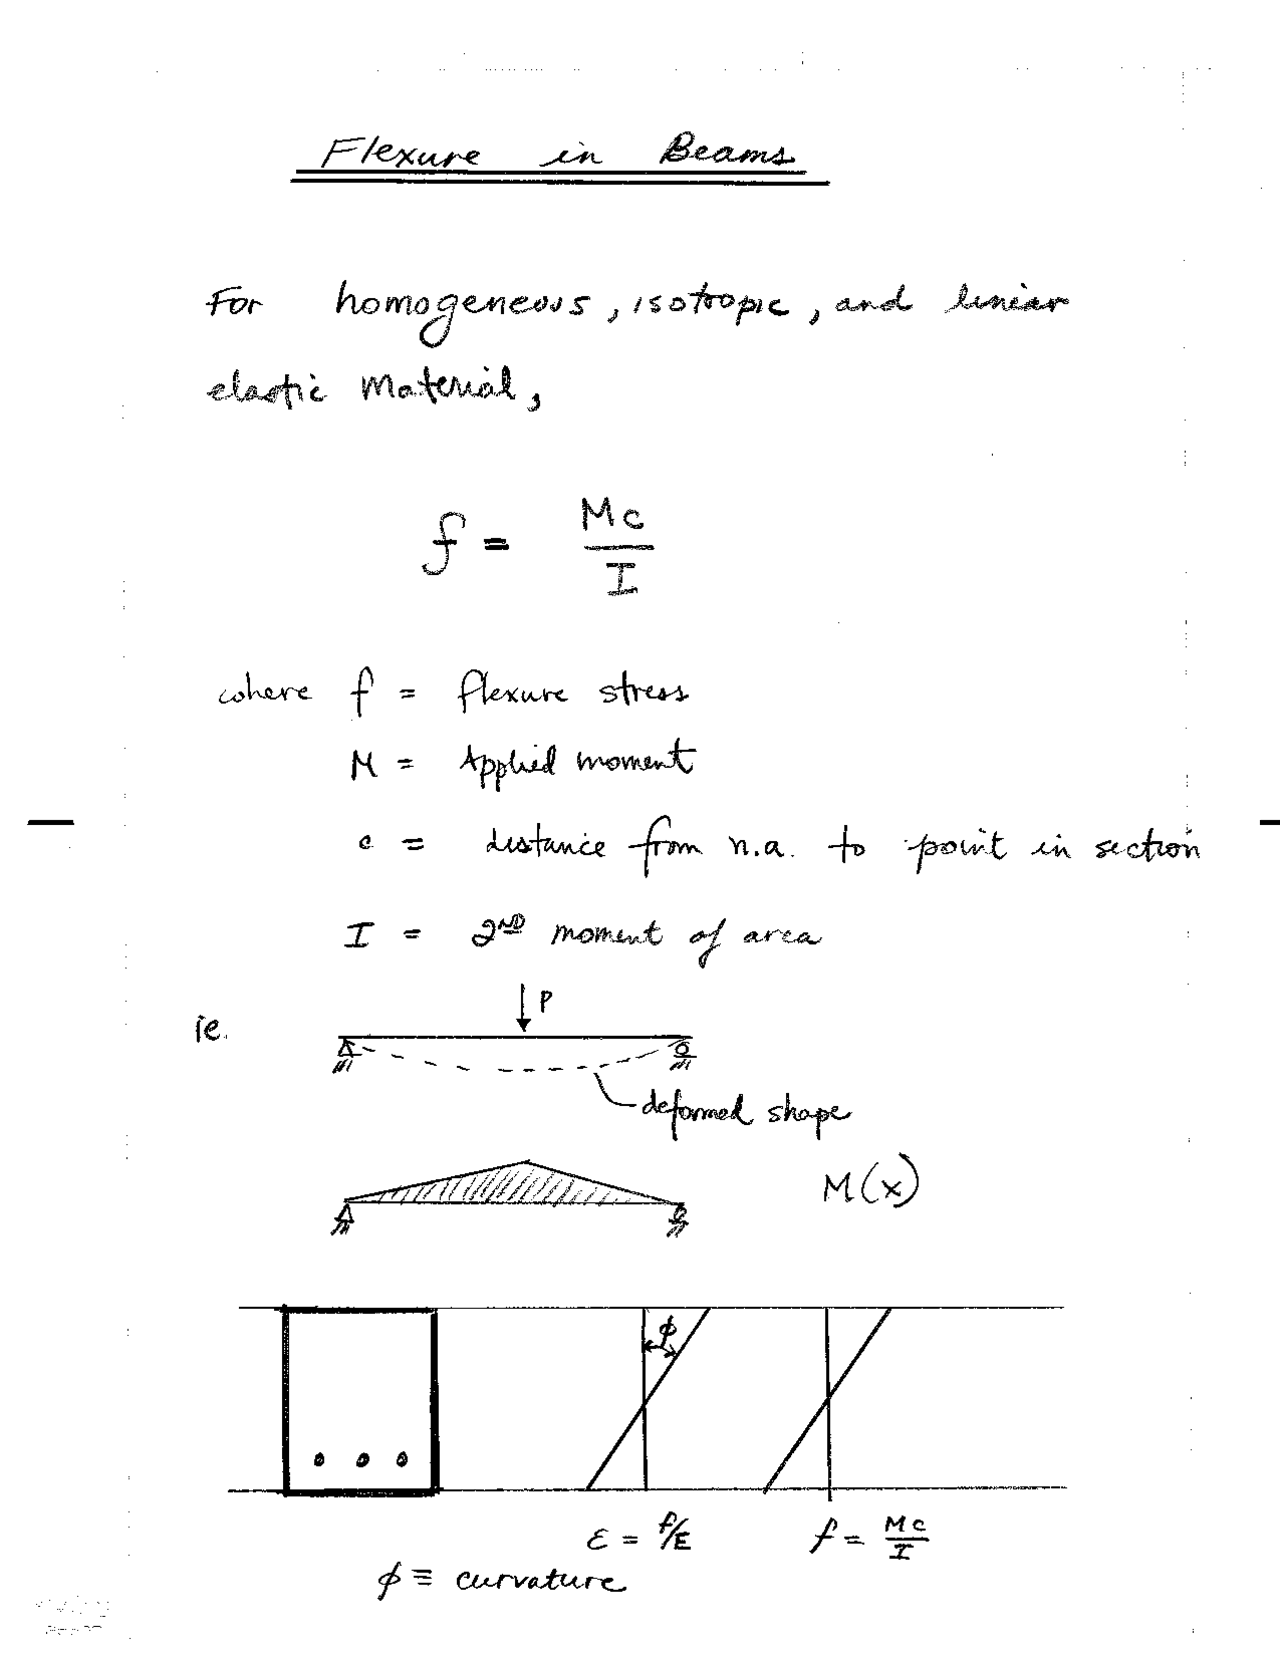 Flexure in Beams
For homogeneous, isotropic, and linear
elastic material,
f = Mc/I
where f = flexure stress
M = Applied moment
c = distance from n.a. to point in section
I = 2ND moment of area
P
ie.
deformed shape
M(x)
ϕ
ε = f/E f = Mc/I
ϕ ≡ curvature